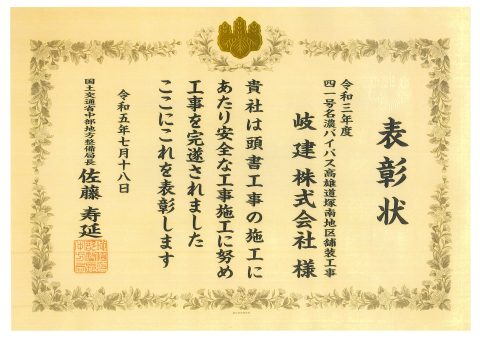 表彰状
令和三年度
四一号名濃バイパス高雄道塚南地区舗装工事
岐建株式会社 様
貴社は頭書工事の施工に
あたり安全な工事施工に努め
工事を完遂されました
ここにこれを表彰します
令和五年七月十八日
国土交通省中部地方整備局長 佐藤寿延